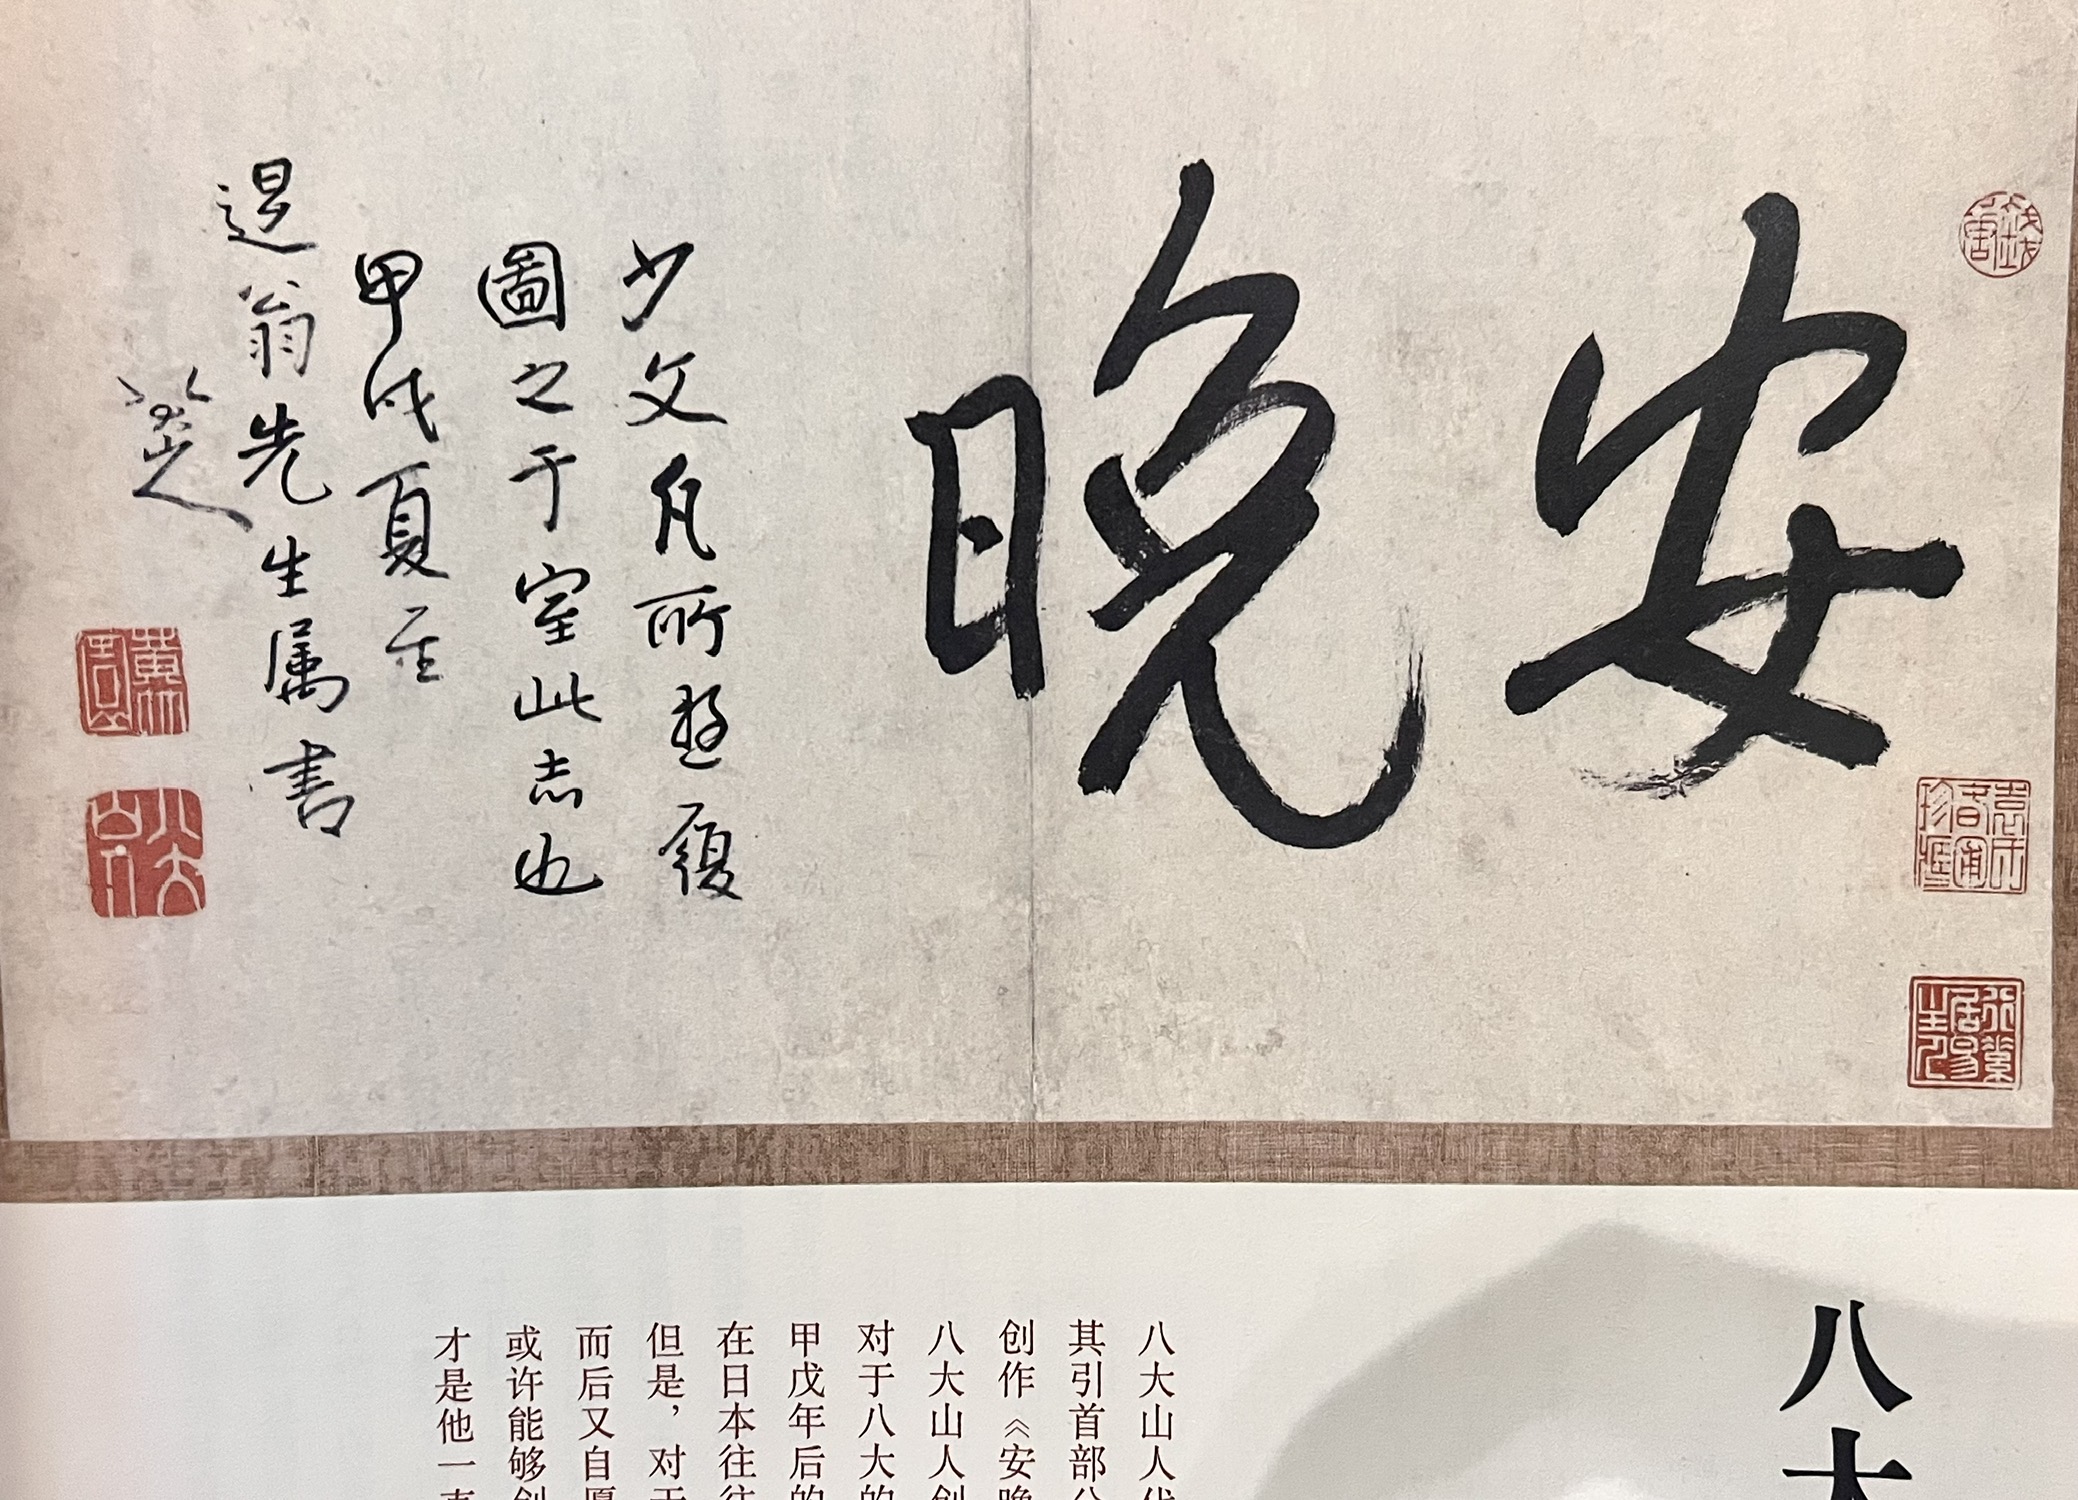 安晚
少文凡所遊履
圖之于室此志也
甲戌夏至
退翁先生属書
八大山人
八大山人
八大
八大山人代
其引首部分
创作《安晚
八大山人创
对于八大的
甲戊年后的
在日本往往
但是，对于
而后又自愿
或许能够创
才是他一直